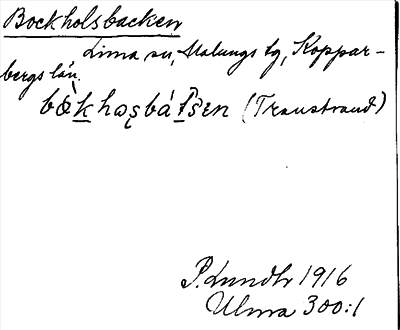 Bockholsbacken
Lima sn, Malungs tg, Koppar-
bergs län.
(Transtrand)
P. Lundh 1916
Ulma 300:1